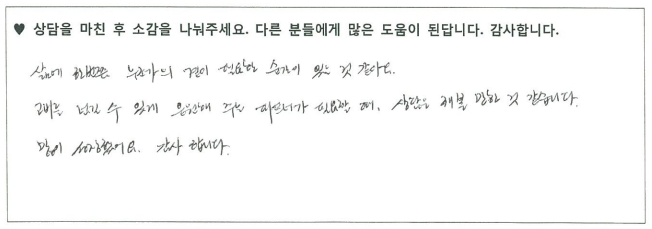 ♥ 상담을 마친 후 소감을 나눠주세요. 다른 분들에게 많은 도움이 된답니다. 감사합니다.
삶에 한번쯤 누군가의 곁이 필요한 순간이 있는 것 같아요.
고비를 넘길 수 있게 응원해 주는 파트너가 필요할 때, 상담을 해볼 만한 것 같습니다.
많이 성장했어요. 감사 합니다.